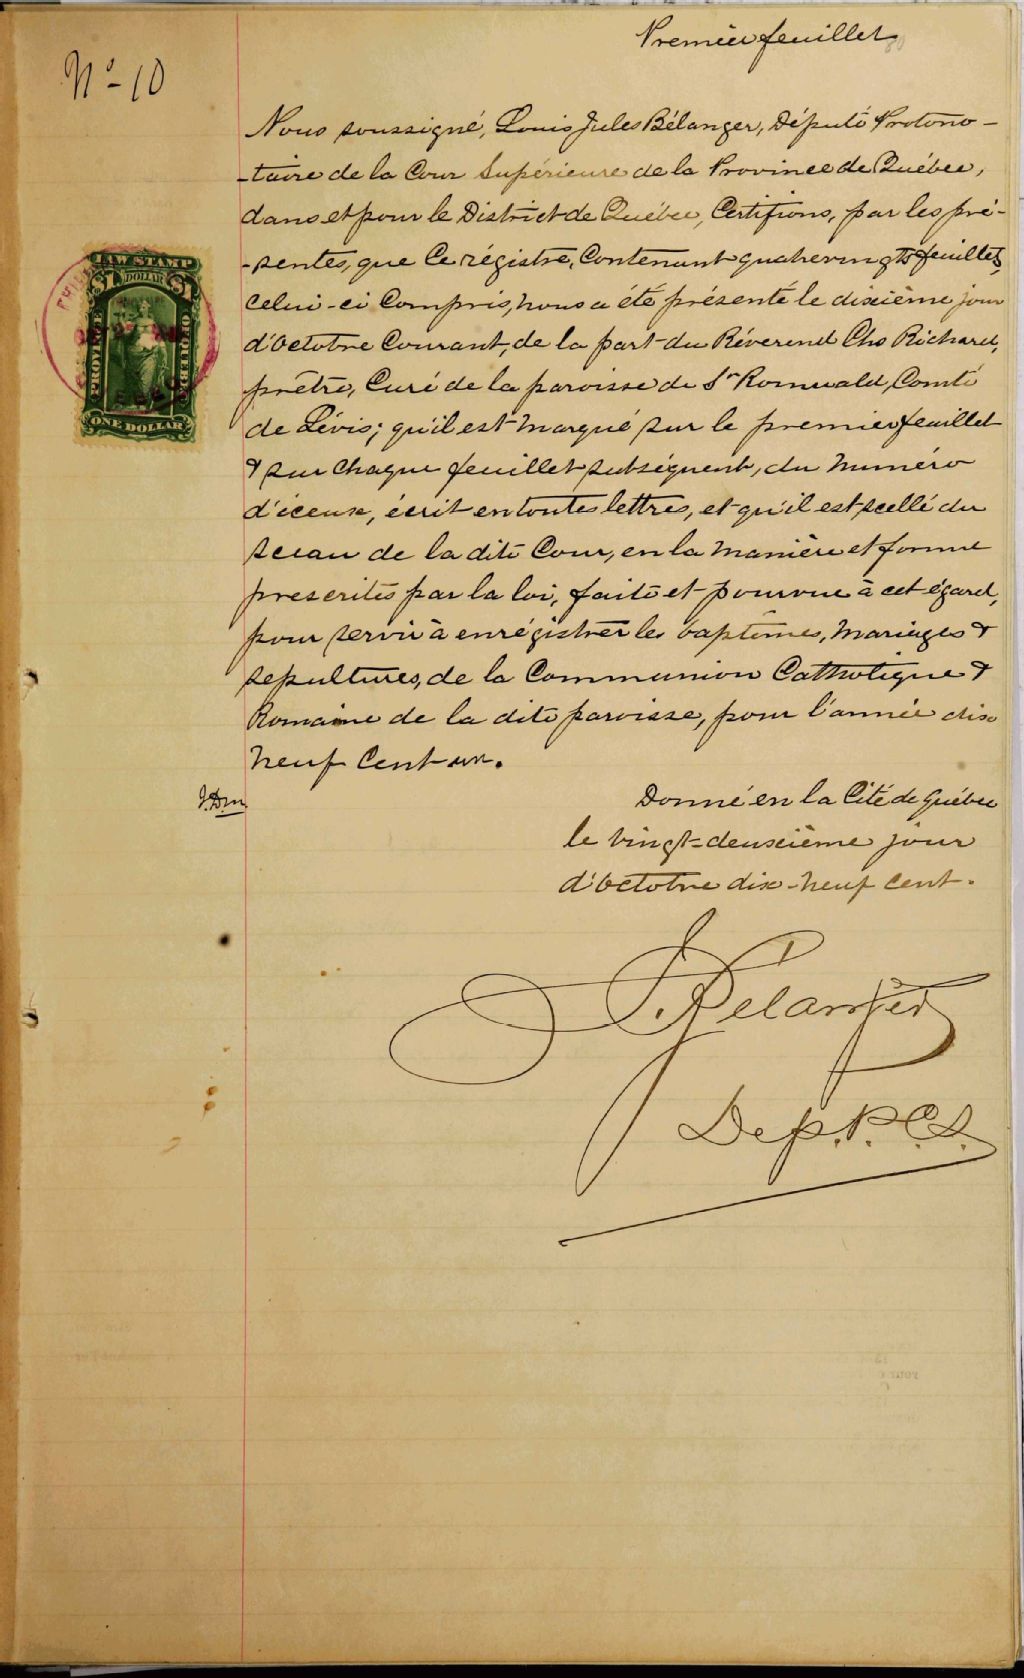 Premier feuillet
80
No - 10
Nous soussigné, Louis Jules Bélanger, Député Protono-
-taire de la Cour Supérieure de la Province de Québec,
dans et pour le District de Québec, Certifions, par les pré-
-sentes, que Ce régistre, Contenant quatrevingts feuillets,
celui-ci Compris, nous a été présenté le dixième jour
d'Octobre Courant, de la part du Révérend Chs Richard,
prêtre, Curé de la paroisse de St Romuald, Comté
de Lévis; qu'il est Marqué sur le premier feuillet
& sur Chaque feuillet subséquent, du Numéro
d'iceux, écrit en toutes lettres, et qu'il est scellé du
sceau de la dite Cour, en la Manière et forme
prescrites par la loi, faite et pourvue à cet égard,
pour servir à enrégistrer les baptêmes, Mariages &
sepultures, de la Communion Catholique &
Romaine de la dite paroisse, pour l'année dix
Neuf Cent un.
Donné en la Cité de Québec
le vingt-deuxième jour
d'Octobre dix-neuf cent.
J. Belanger
Dep. P. C. S.
LAW STAMP
$1 DOLLAR $1
PROVINCE
QUEBEC
ONE DOLLAR